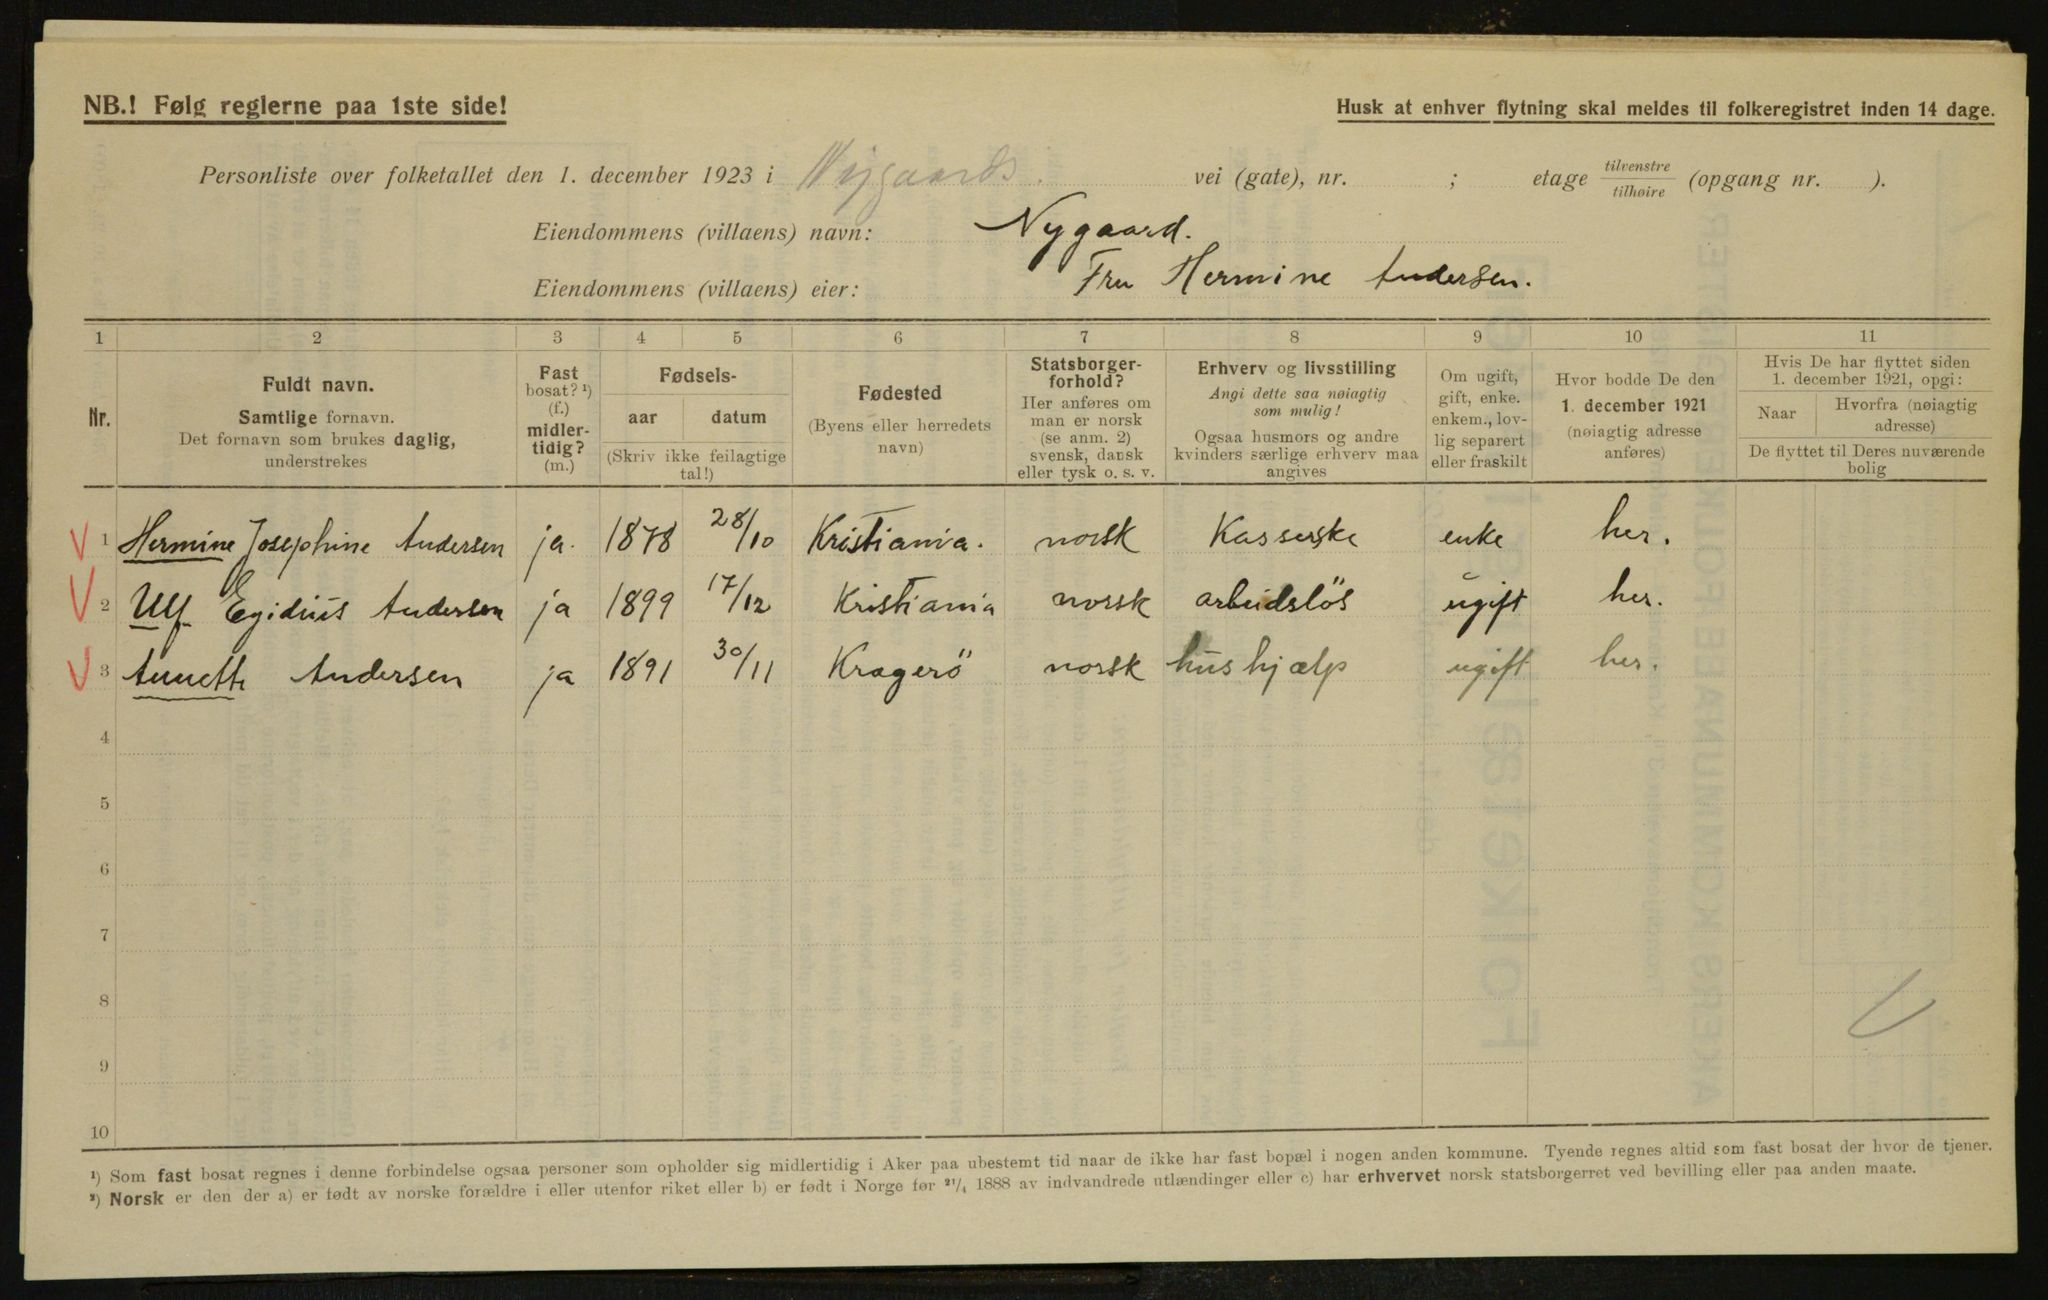 NB.! Følg reglerne paa 1ste side!
Husk at enhver flytning skal meldes til folkeregistret inden 14 dage.
Personliste over folketallet den 1. december 1923 i Nygaards. vei (gate), nr. ; etage tilvenstre tilhøire (opgang nr. ).
Eiendommens (villaens) navn: Nygaard.
Eiendommens (villaens) eier: Fru Hermine Andersen.
1 2 3 4 5 6 7 8 9 10 11
Nr.
Fuldt navn.
Samtlige fornavn.
Det fornavn som brukes daglig,
understrekes
Fast
bosat? ¹)
(f.)
midler-
tidig?
(m.)
Fødsels-
aar datum
(Skriv ikke feilagtige
tal!)
Fødested
(Byens eller herredets
navn)
Statsborger-
forhold?
Her anføres om
man er norsk
(se anm. 2)
svensk, dansk
eller tysk o. s. v.
Erhverv og livsstilling
Angi dette saa nøiagtig
som mulig!
Ogsaa husmors og andre
kvinders særlige erhverv maa
angives
Om ugift,
gift, enke.
enkem., lov-
lig separert
eller fraskilt
Hvor bodde De den
1. december 1921
(nøiagtig adresse
anføres)
Hvis De har flyttet siden
1. december 1921, opgi:
Naar
Hvorfra (nøiagtig
adresse)
De flyttet til Deres nuværende
bolig
1 Hermine Josephine Andersen ja. 1878 28/10 Kristiania. norsk Kasserske enke her.
2 Ulf Egidius Andersen ja 1899 17/12 Kristiania norsk arbeidslös ugift her.
3 Annette Andersen ja 1891 30/11 Kragerö norsk hushjælp ugift her.
4
5
6
7
8
9
10
¹) Som fast bosat regnes i denne forbindelse ogsaa personer som opholder sig midlertidig i Aker paa ubestemt tid naar de ikke har fast bopæl i nogen anden kommune. Tyende regnes altid som fast bosat der hvor de tjener.
²) Norsk er den der a) er født av norske forældre i eller utenfor riket eller b) er født i Norge før ²¹/₄ 1888 av indvandrede utlændinger eller c) har erhvervet norsk statsborgerret ved bevilling eller paa anden maate.